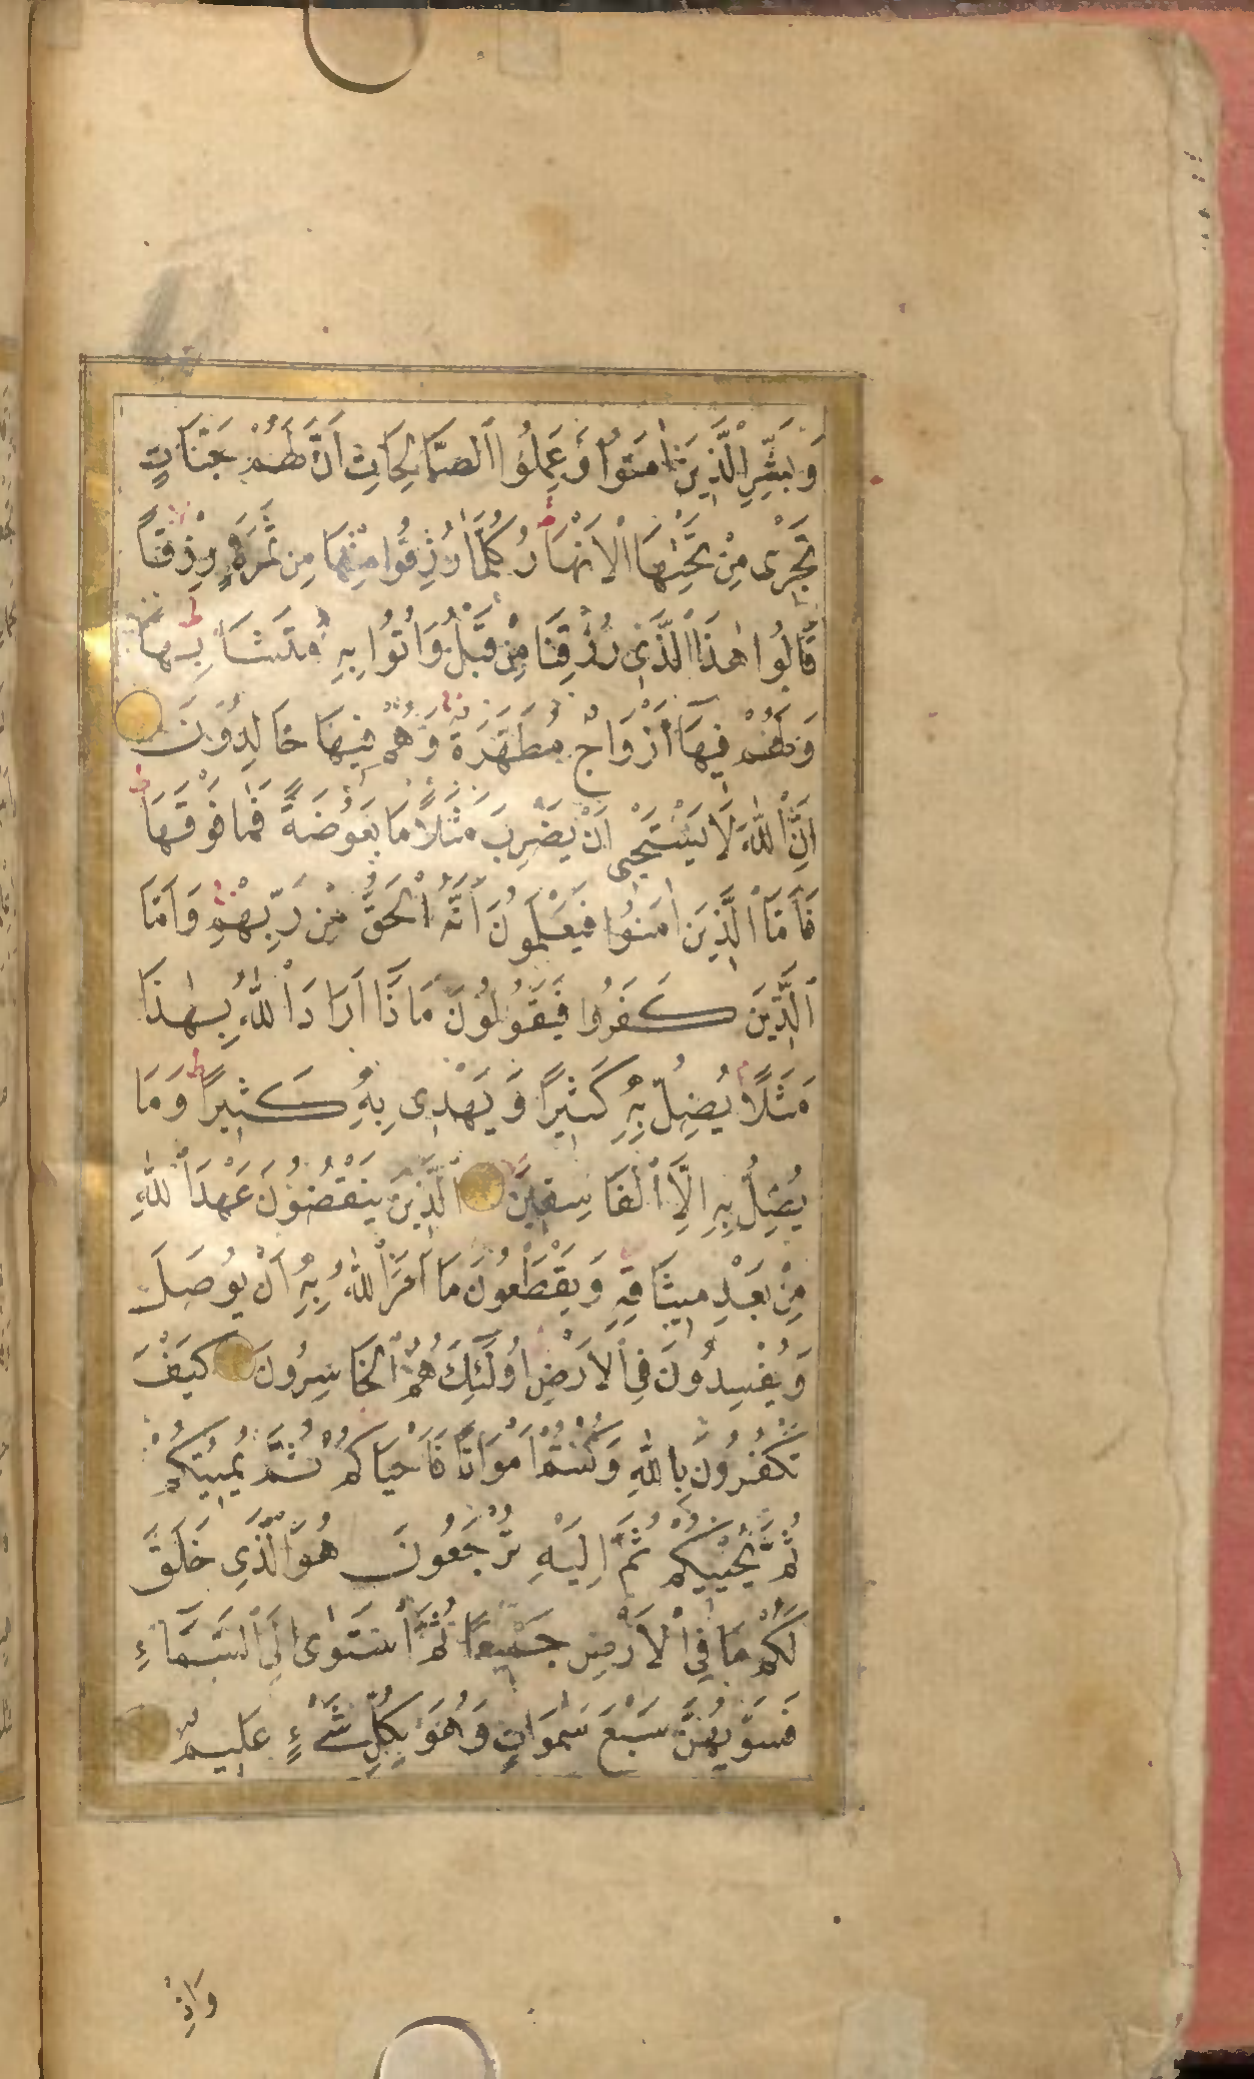 وَبَشِّرِ الَّذِينَ اٰمَنُوا وَعَمِلُوا الصَّالِحَاتِ اَنَّ لَهُمْ جَنَّاتٍ
تَجْرٖى مِنْ تَحْتِهَا الْاَنْهَارُ كُلَّمَا رُزِقُوا مِنْهَا مِنْ ثَمَرَةٍ رِزْقًا
قَالُوا هٰذَا الَّذِى رُزِقْنَا مِنْ قَبْلُ وَاُتُوا بِهٖ مُتَشَابِهًا
وَلَهُمْ فِيهَا اَزْوَاجٌ مُطَهَّرَةٌ وَهُمْ فِيهَا خَالِدُونَ
اِنَّ اللّٰهَ لَا يَسْتَحْيٖى اَنْ يَضْرِبَ مَثَلًا مَا بَعُوضَةً فَمَا فَوْقَهَا ط
فَاَمَّا الَّذِينَ اٰمَنُوا فَيَعْلَمُونَ اَنَّهُ الْحَقُّ مِنْ رَبِّهِمْ وَاَمَّا
الَّذِينَ كَفَرُوا فَيَقُولُونَ مَاذَا اَرَادَ اللّٰهُ بِهٰذَا
مَثَلًا م يُضِلُّ بِهٖ كَثِيرًا وَيَهْدِى بِهٖ كَثِيرًا ط وَمَا
يُضِلُّ بِهٖ اِلَّا الْفَاسِقِينَ الَّذِينَ يَنْقُضُونَ عَهْدَ اللّٰهِ
مِنْ بَعْدِ مِيثَاقِهٖ وَيَقْطَعُونَ مَا اَمَرَ اللّٰهُ بِهٖ اَنْ يُوصَلَ
وَيُفْسِدُونَ فِى الْاَرْضِ اُولٰئِكَ هُمُ الْخَاسِرُونَ كَيْفَ
تَكْفُرُونَ بِاللّٰهِ وَكُنْتُمْ اَمْوَاتًا فَاَحْيَاكُمْ ثُمَّ يُمِيتُكُمْ
ثُمَّ يُحْيِيكُمْ ثُمَّ اِلَيْهِ تُرْجَعُونَ هُوَ الَّذِى خَلَقَ
لَكُمْ مَا فِى الْاَرْضِ جَمِيعًا ثُمَّ اسْتَوٰى اِلَى السَّمَاءِ
فَسَوّٰيهُنَّ سَبْعَ سَمٰوَاتٍ وَهُوَ بِكُلِّ شَىْءٍ عَلِيمٌ
وَاِذْ